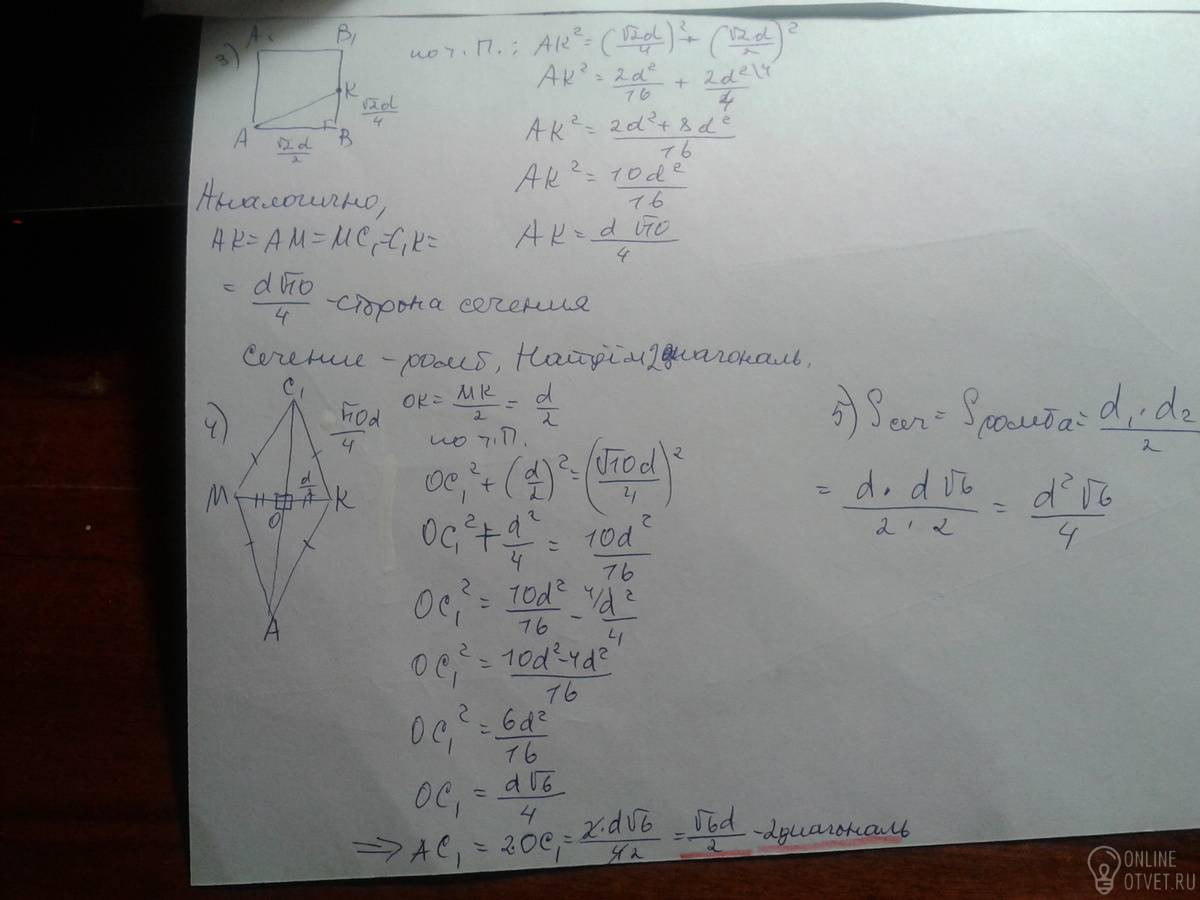 3)
A₁ B₁
K
√2d/4
A B
√2d/2
по т. П.: AK² = (√2d/4)² + (√2d/2)²
AK² = 2d²/16 + 2d²\4/4
AK² = (2d²+8d²)/16
AK² = 10d²/16
AK = d√10/4
Аналогично,
AK = AM = MC₁ = C₁K =
= d√10/4 - сторона сечения
Сечение - ромб, Найдём 2 диагональ.
4)
C₁
√10d/4
M K
d/2
O
A
OK = MK/2 = d/2
по т.П.
OC₁² + (d/2)² = (√10d/4)²
OC₁² + d²/4 = 10d²/16
OC₁² = 10d²/16 - 4/d²/4
OC₁² = (10d²-4d²)/16
OC₁² = 6d²/16
OC₁ = d√6/4
=> AC₁ = 2OC₁ = 2·d√6/42 = √6d/2 - 2 диагональ
5) Sсеч = Sромба = d₁·d₂/2
= d·d√6/2·2 = d²√6/4
ONLINE
OTVET.RU